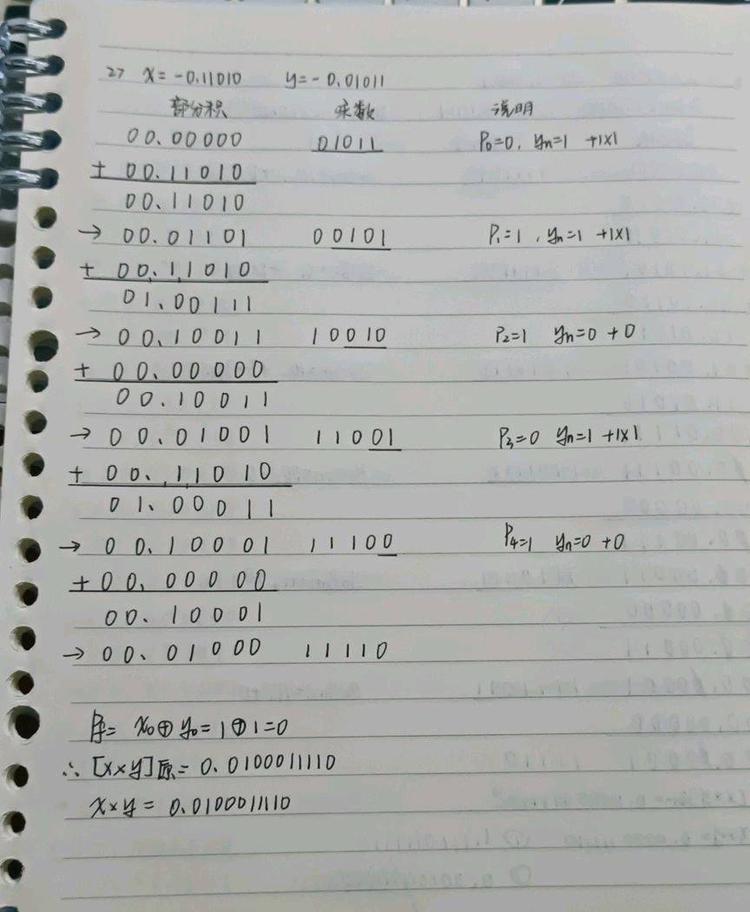 2> x=-0.11010 y=-0.01011
部分积 乘数 说明
00.00000 01011 P₀=0, yn=1 +|x|
+ 00.11010
00.11010
→ 00.01101 00101 P₁=1, yn=1 +|x|
+ 00.11010
01.00111
→ 00.10011 10010 P₂=1 yn=0 +0
+ 00.00000
00.10011
→ 00.01001 11001 P₃=0 yn=1 +|x|
+ 00.11010
01.00011
→ 00.10001 11100 P₄=1 yn=0 +0
+ 00.00000
00.10001
→ 00.01000 11110
Pf= x₀⊕y₀=1⊕1=0
∴ [x×y]原=0.0100011110
x×y=0.0100011110